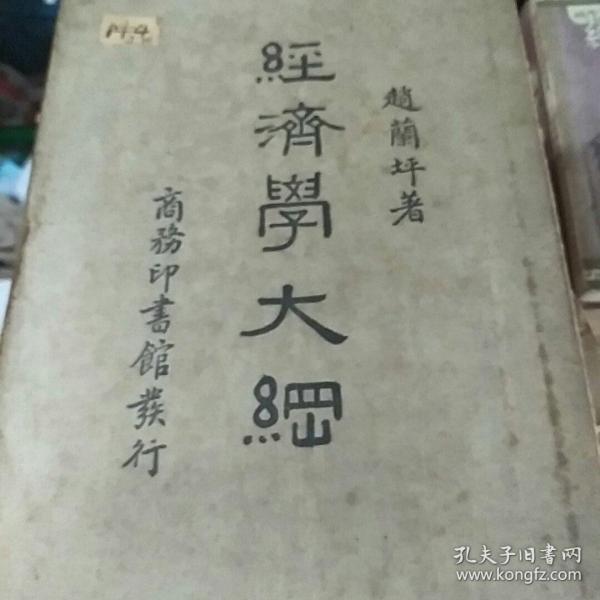 趙蘭坪著
經濟學大綱
商務印書館發行
孔夫子旧书网
www.kongfz.com